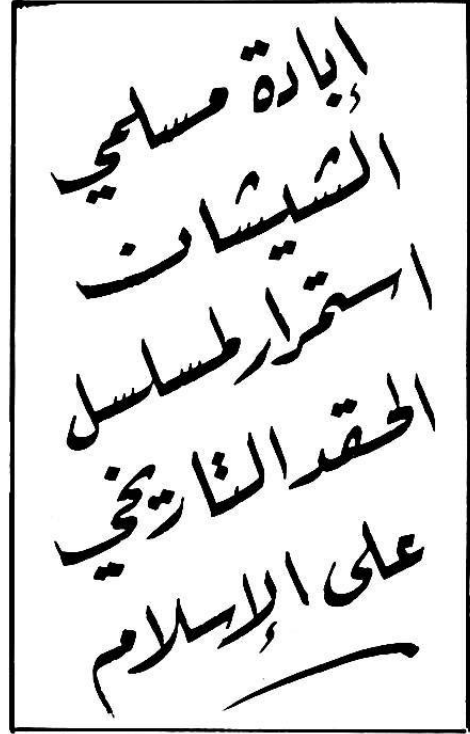 إبادة مسلمي
الشيشان
استمرار لمسلسل
الحقد التاريخي
على الإسلام